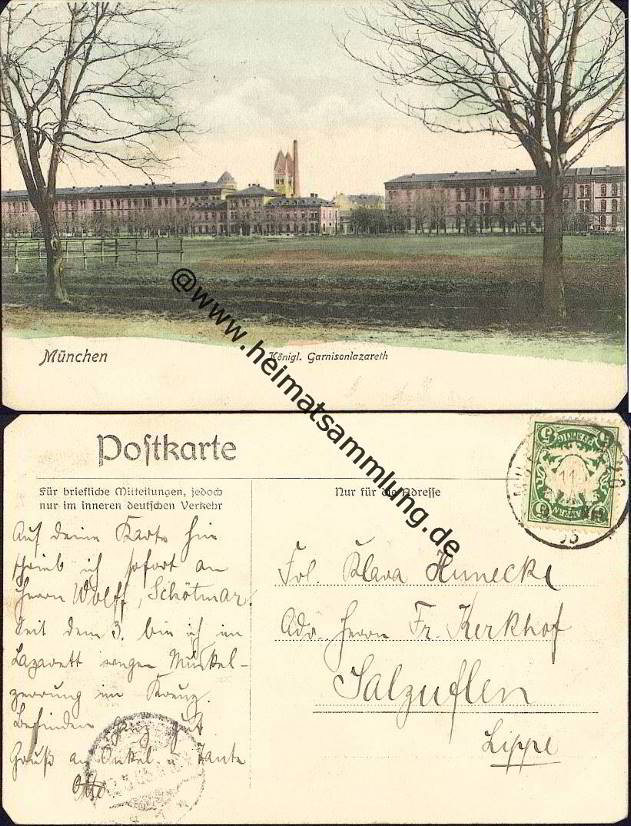 München
Königl. Garnisonlazareth
@www.heimatsammlung.de
Postkarte
Für briefliche Mitteilungen, jedoch
nur im inneren deutschen Verkehr
Nur für die Adresse
Auf deine Karte hin
schrieb ich sofort an
Herrn Wolff, Schötmar.
Seit dem 3. bin ich im
Lazarett wegen Muskel-
zerrung im Kreuz.
Befinden ganz gut.
Gruß an Onkel u. Tante
Otto.
Frl. Klara Hunecke
Adr. Herrn Fr. Kerkhof
Salzuflen
Lippe